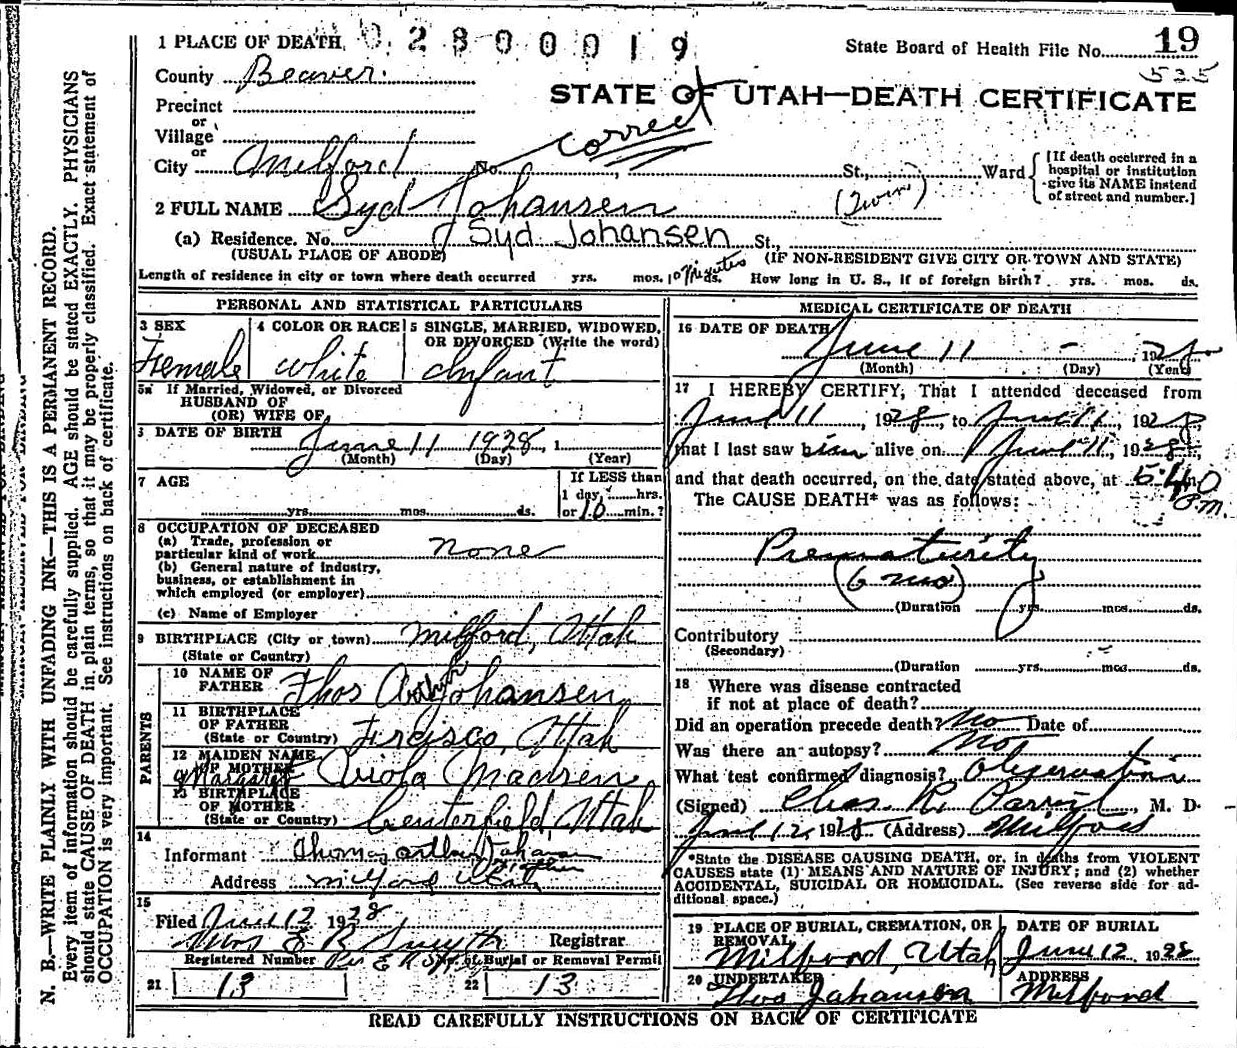 1 PLACE OF DEATH 0 2 8 0 0 0 1 9 State Board of Health File No. 19
525
County Beaver.
STATE OF UTAH—DEATH CERTIFICATE
Precinct
or
Village
correct
or
City Milford No. St., Ward [If death occurred in a hospital or institution give its NAME instead of street and number.]
2 FULL NAME Syd Johansen (Twin)
(a) Residence. No. Syd Johansen St.,
(USUAL PLACE OF ABODE) (IF NON-RESIDENT GIVE CITY OR TOWN AND STATE)
Length of residence in city or town where death occurred yrs. mos. 10 Minutes ds. How long in U. S., if of foreign birth? yrs. mos. ds.
PERSONAL AND STATISTICAL PARTICULARS
3 SEX
Female
4 COLOR OR RACE
white
5 SINGLE, MARRIED, WIDOWED, OR DIVORCED (Write the word)
Infant
5a If Married, Widowed, or Divorced
HUSBAND OF
(OR) WIFE OF
DATE OF BIRTH
June 11 1928, 1
(Month) (Day) (Year)
7 AGE
yrs. mos. ds.
If LESS than
1 day, hrs.
or 10 min.?
8 OCCUPATION OF DECEASED
(a) Trade, profession or
particular kind of work none
(b) General nature of industry,
business, or establishment in
which employed (or employer)
(c) Name of Employer
9 BIRTHPLACE (City or town) Milford, Utah
(State or Country)
PARENTS
10 NAME OF
FATHER Thos Arthur Johansen
11 BIRTHPLACE
OF FATHER
(State or Country) Fricisco, Utah
12 MAIDEN NAME
OF MOTHER Margaret Viola Madsen
13 BIRTHPLACE
OF MOTHER
(State or Country) Centerfield, Utah
14
Informant Thomas Arthur Johansen
Address Milford Utah
15
Filed June 12 1928
Mrs E R Smyth Registrar
Registered Number No. of Burial or Removal Permit
21 13 22 13
MEDICAL CERTIFICATE OF DEATH
16 DATE OF DEATH
June 11 - 1928
(Month) (Day) (Year)
17 I HEREBY CERTIFY, That I attended deceased from
June 11, 1928, to June 11, 1928,
that I last saw him alive on June 11, 1928,
and that death occurred, on the date stated above, at 5:40 m.
P.m.
The CAUSE DEATH* was as follows:
Prematurity
(6 mo)
(Duration yrs. mos. ds.
Contributory
(Secondary)
(Duration yrs. mos. ds.
18 Where was disease contracted
if not at place of death?
Did an operation precede death? No Date of
Was there an autopsy? No
What test confirmed diagnosis? Observation
(Signed) Chas. R. Parrish, M. D.
June 12, 1928 (Address) Milford
*State the DISEASE CAUSING DEATH, or, in deaths from VIOLENT
CAUSES state (1) MEANS AND NATURE OF INJURY; and (2) whether
ACCIDENTAL, SUICIDAL OR HOMICIDAL. (See reverse side for ad-
ditional space.)
19 PLACE OF BURIAL, CREMATION, OR
REMOVAL
Milford, Utah
DATE OF BURIAL
June 12 1928
20 UNDERTAKER
Thos Johansen
ADDRESS
Milford
READ CAREFULLY INSTRUCTIONS ON BACK OF CERTIFICATE
N. B.—WRITE PLAINLY WITH UNFADING INK—THIS IS A PERMANENT RECORD.
Every item of information should be carefully supplied. AGE should be stated EXACTLY. PHYSICIANS
should state CAUSE OF DEATH in plain terms, so that it may be properly classified. Exact statement of
OCCUPATION is very important. See instructions on back of certificate.